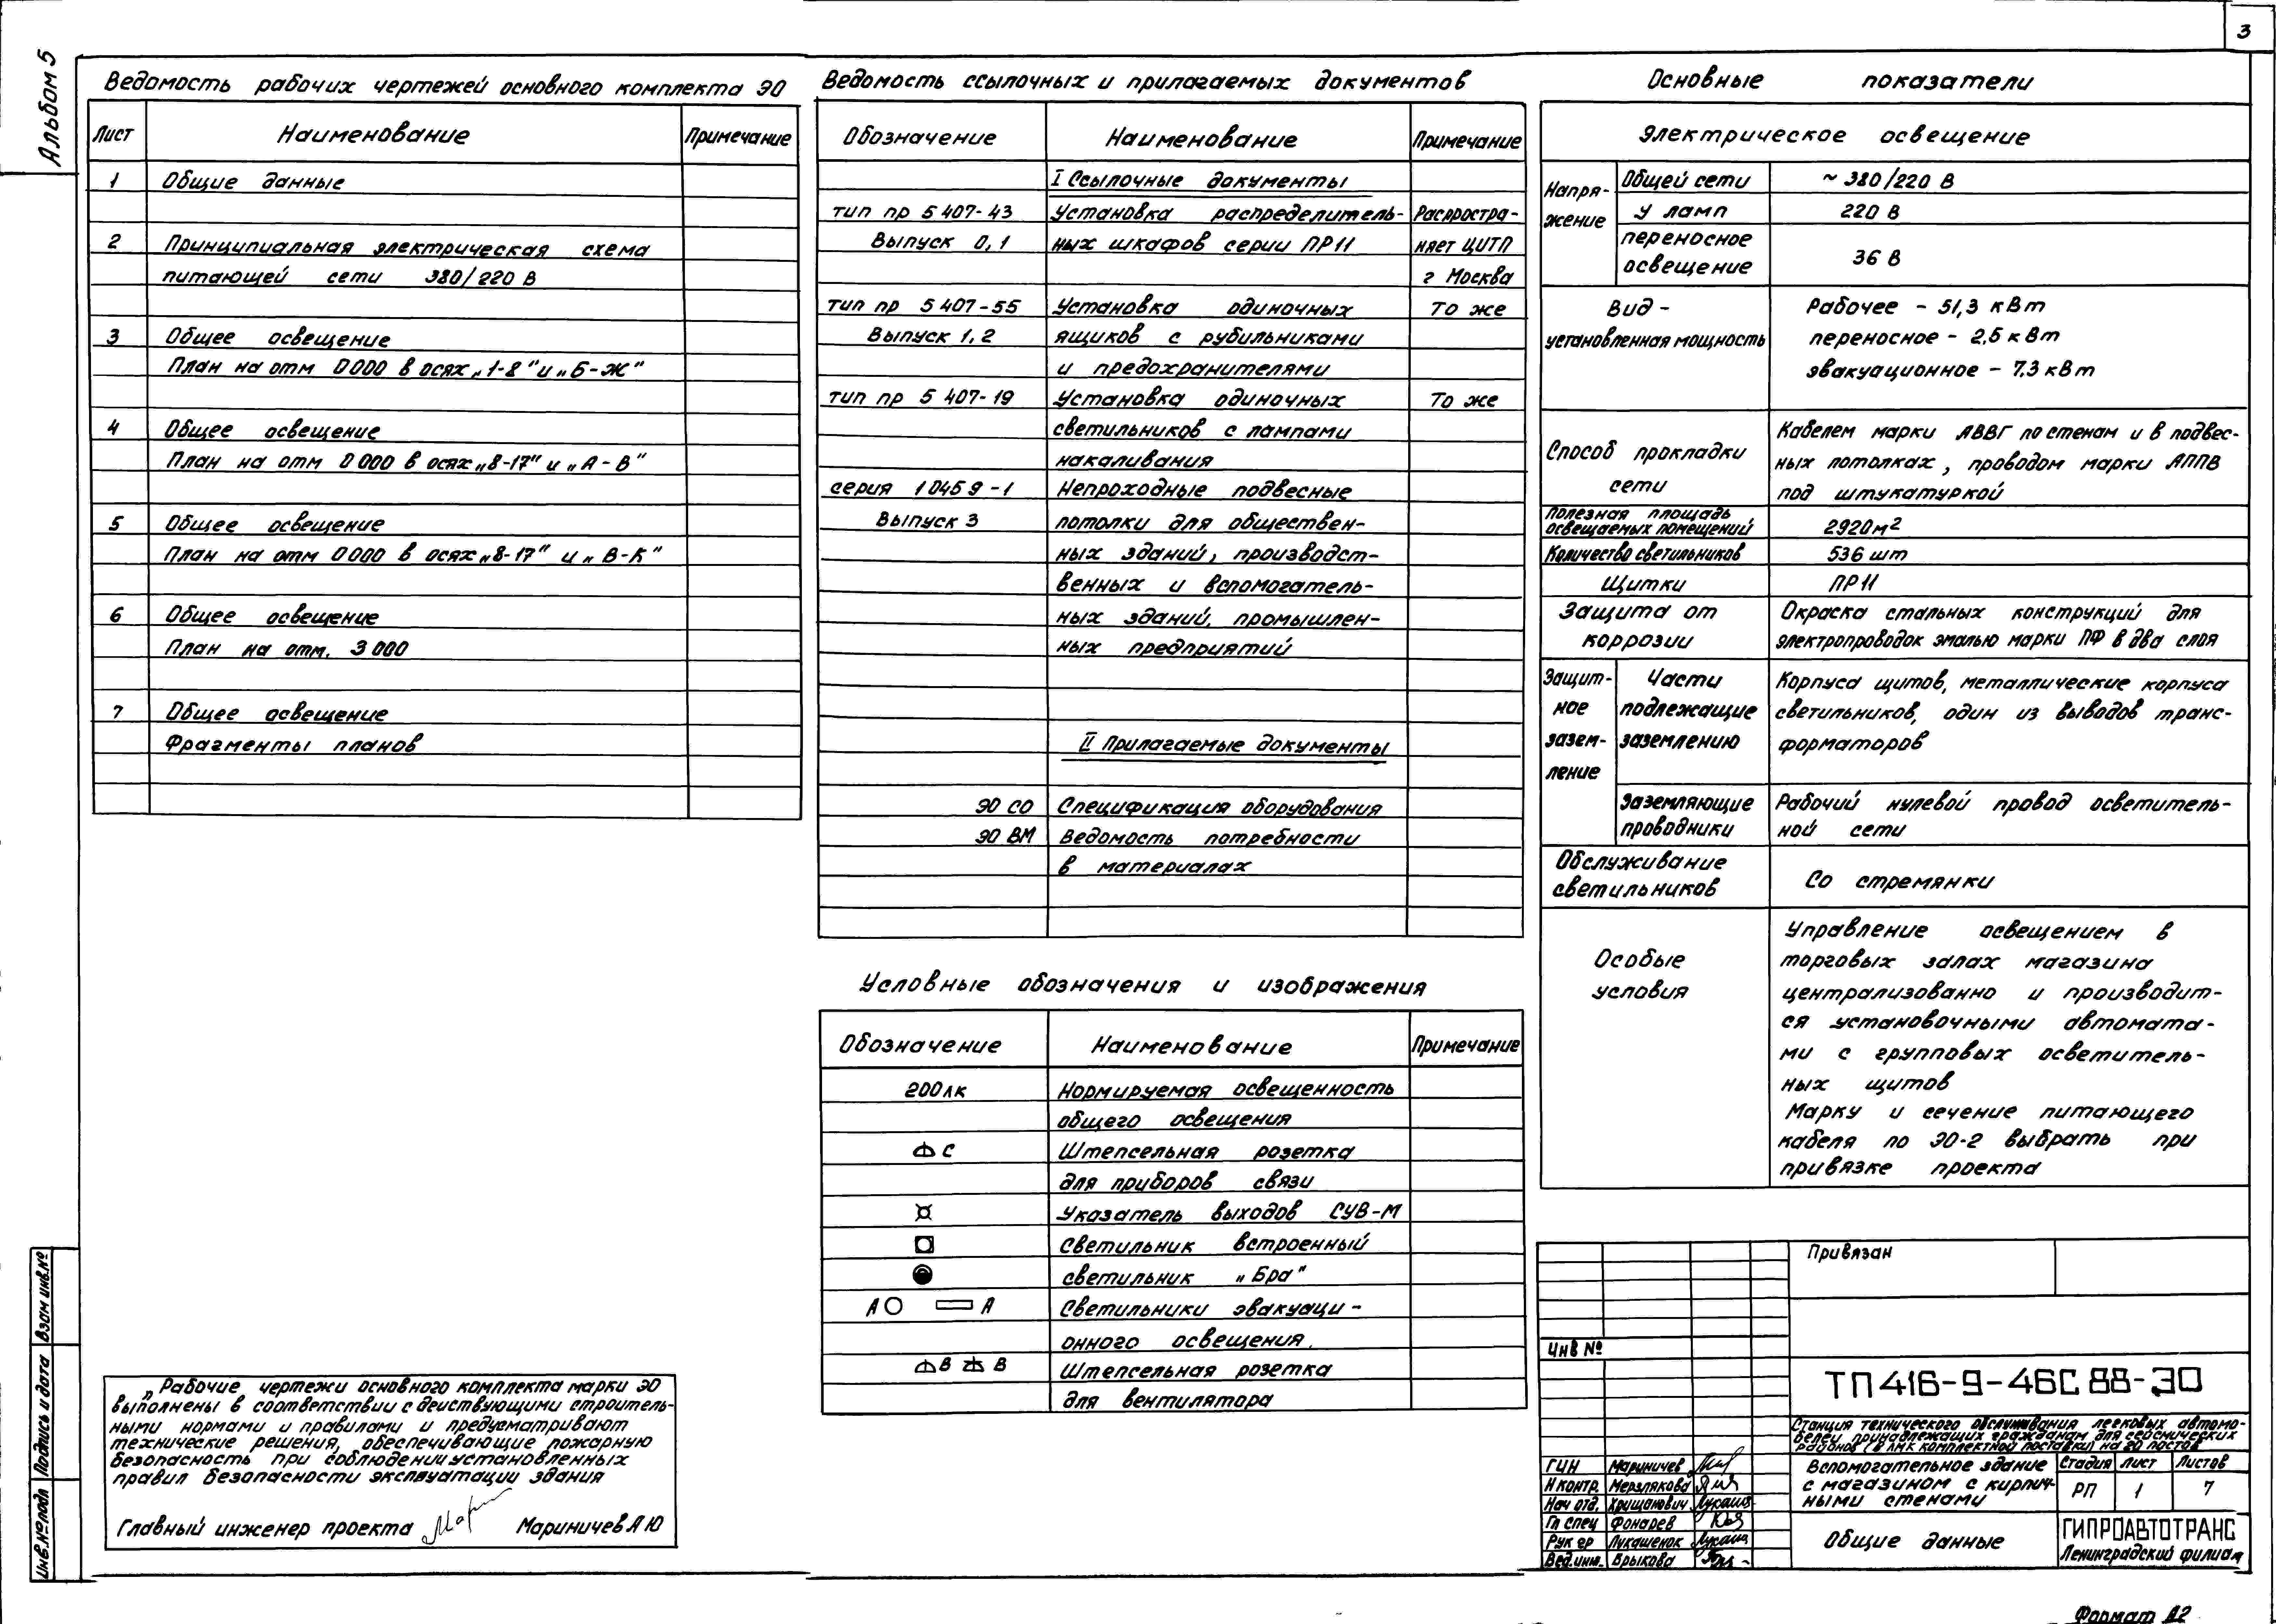 3
Альбом 5
Ведомость рабочих чертежей основного комплекта ЭО
Лист Наименование Примечание
1 Общие данные
2 Принципиальная электрическая схема
питающей сети 380/220 В
3 Общее освещение
План на отм 0 000 в осях „1-8" и „Б-Ж"
4 Общее освещение
План на отм 0 000 в осях „8-17" и „А-В"
5 Общее освещение
План на отм 0 000 в осях „8-17" и „В-К"
6 Общее освещение
План на отм. 3 000
7 Общее освещение
Фрагменты планов
„Рабочие чертежи основного комплекта марки ЭО
выполнены в соответствии с действующими строитель-
ными нормами и правилами и предусматривают
технические решения, обеспечивающие пожарную
безопасность при соблюдении установленных
правил безопасности эксплуатации здания
Главный инженер проекта Мариничев А Ю
Ведомость ссылочных и прилагаемых документов
Обозначение Наименование Примечание
I Ссылочные документы
тип пр 5 407-43 Установка распределитель- Распростра-
Выпуск 0, 1 ных шкафов серии ПР 11 няет ЦИТП
г Москва
тип пр 5 407-55 Установка одиночных То же
Выпуск 1, 2 ящиков с рубильниками
и предохранителями
тип пр 5 407-19 Установка одиночных То же
светильников с лампами
накаливания
серия 1 045 9-1 Непроходные подвесные
Выпуск 3 потолки для обществен-
ных зданий, производст-
венных и вспомогатель-
ных зданий, промышлен-
ных предприятий
II Прилагаемые документы
ЭО СО Спецификация оборудования
ЭО ВМ Ведомость потребности
в материалах
Условные обозначения и изображения
Обозначение Наименование Примечание
200 лк Нормируемая освещенность
общего освещения
С Штепсельная розетка
для приборов связи
Указатель выходов СУВ-М
Светильник встроенный
светильник „Бра"
А А Светильники эвакуаци-
онного освещения.
В В Штепсельная розетка
для вентилятора
Основные показатели
Электрическое освещение
Напря-
жение
Общей сети ~ 380/220 В
У ламп 220 В
переносное
освещение 36 В
Вид -
установленная мощность
Рабочее - 51,3 кВт
переносное - 2,5 кВт
эвакуационное - 7,3 кВт
Способ прокладки
сети
Кабелем марки АВВГ по стенам и в подвес-
ных потолках, проводом марки АППВ
под штукатуркой
Полезная площадь
освещаемых помещений 2920 м²
Количество светильников 536 шт
Щитки ПР 11
Защита от
коррозии
Окраска стальных конструкций для
электропроводок эмалью марки ПФ в два слоя
Защит-
ное
зазем-
ление
Части
подлежащие
заземлению
Корпуса щитов, металлические корпуса
светильников, один из выводов транс-
форматоров
Заземляющие
проводники
Рабочий нулевой провод осветитель-
ной сети
Обслуживание
светильников
Со стремянки
Особые
условия
Управление освещением в
торговых залах магазина
централизованно и производит-
ся установочными автомата-
ми с групповых осветитель-
ных щитов
Марку и сечение питающего
кабеля по ЭО-2 выбрать при
привязке проекта
Привязан
Инв №
ТП 416-9-46С 88-ЭО
Станция технического обслуживания легковых автомо-
билей принадлежащих гражданам для сейсмических
районов (в ЛМК комплектной поставки) на 20 постов
ГИП Мариничев
Н контр. Мерзлякова
Нач отд. Хрщанович
Гл спец Фонарев
Рук гр Лукашенок
Вед. инж. Брыкова
Вспомогательное здание
с магазином с кирпич-
ными стенами
Стадия Лист Листов
РП 1 7
Общие данные
ГИПРОАВТОТРАНС
Ленинградский филиал
Инв. № подл Подпись и дата Взам инв. №
Формат А2